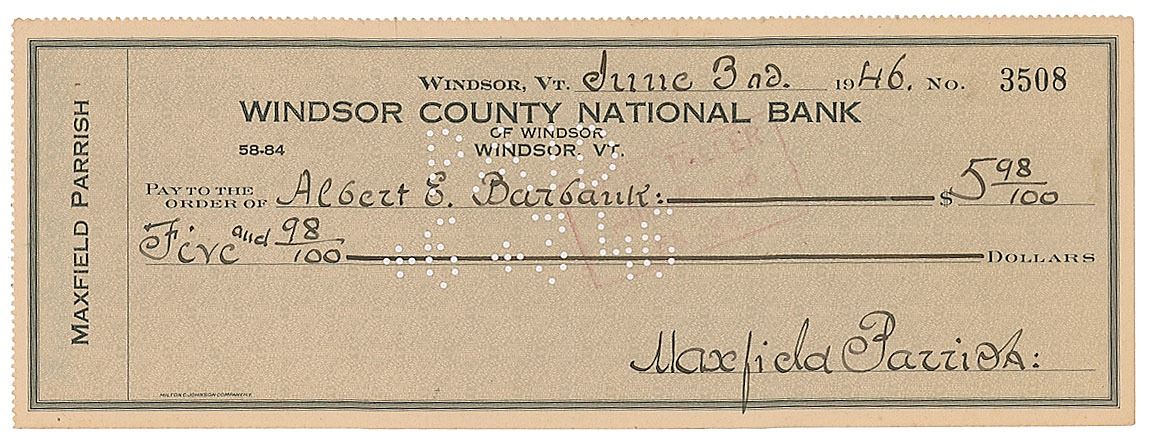 WINDSOR, VT. June 3nd. 1946. NO. 3508
WINDSOR COUNTY NATIONAL BANK
OF WINDSOR
58-84 WINDSOR, VT.
PAY TO THE ORDER OF Albert E. Barbank: $ 5 98/100
Five and 98/100 DOLLARS
Maxfield Parrish:
MAXFIELD PARRISH
PAID